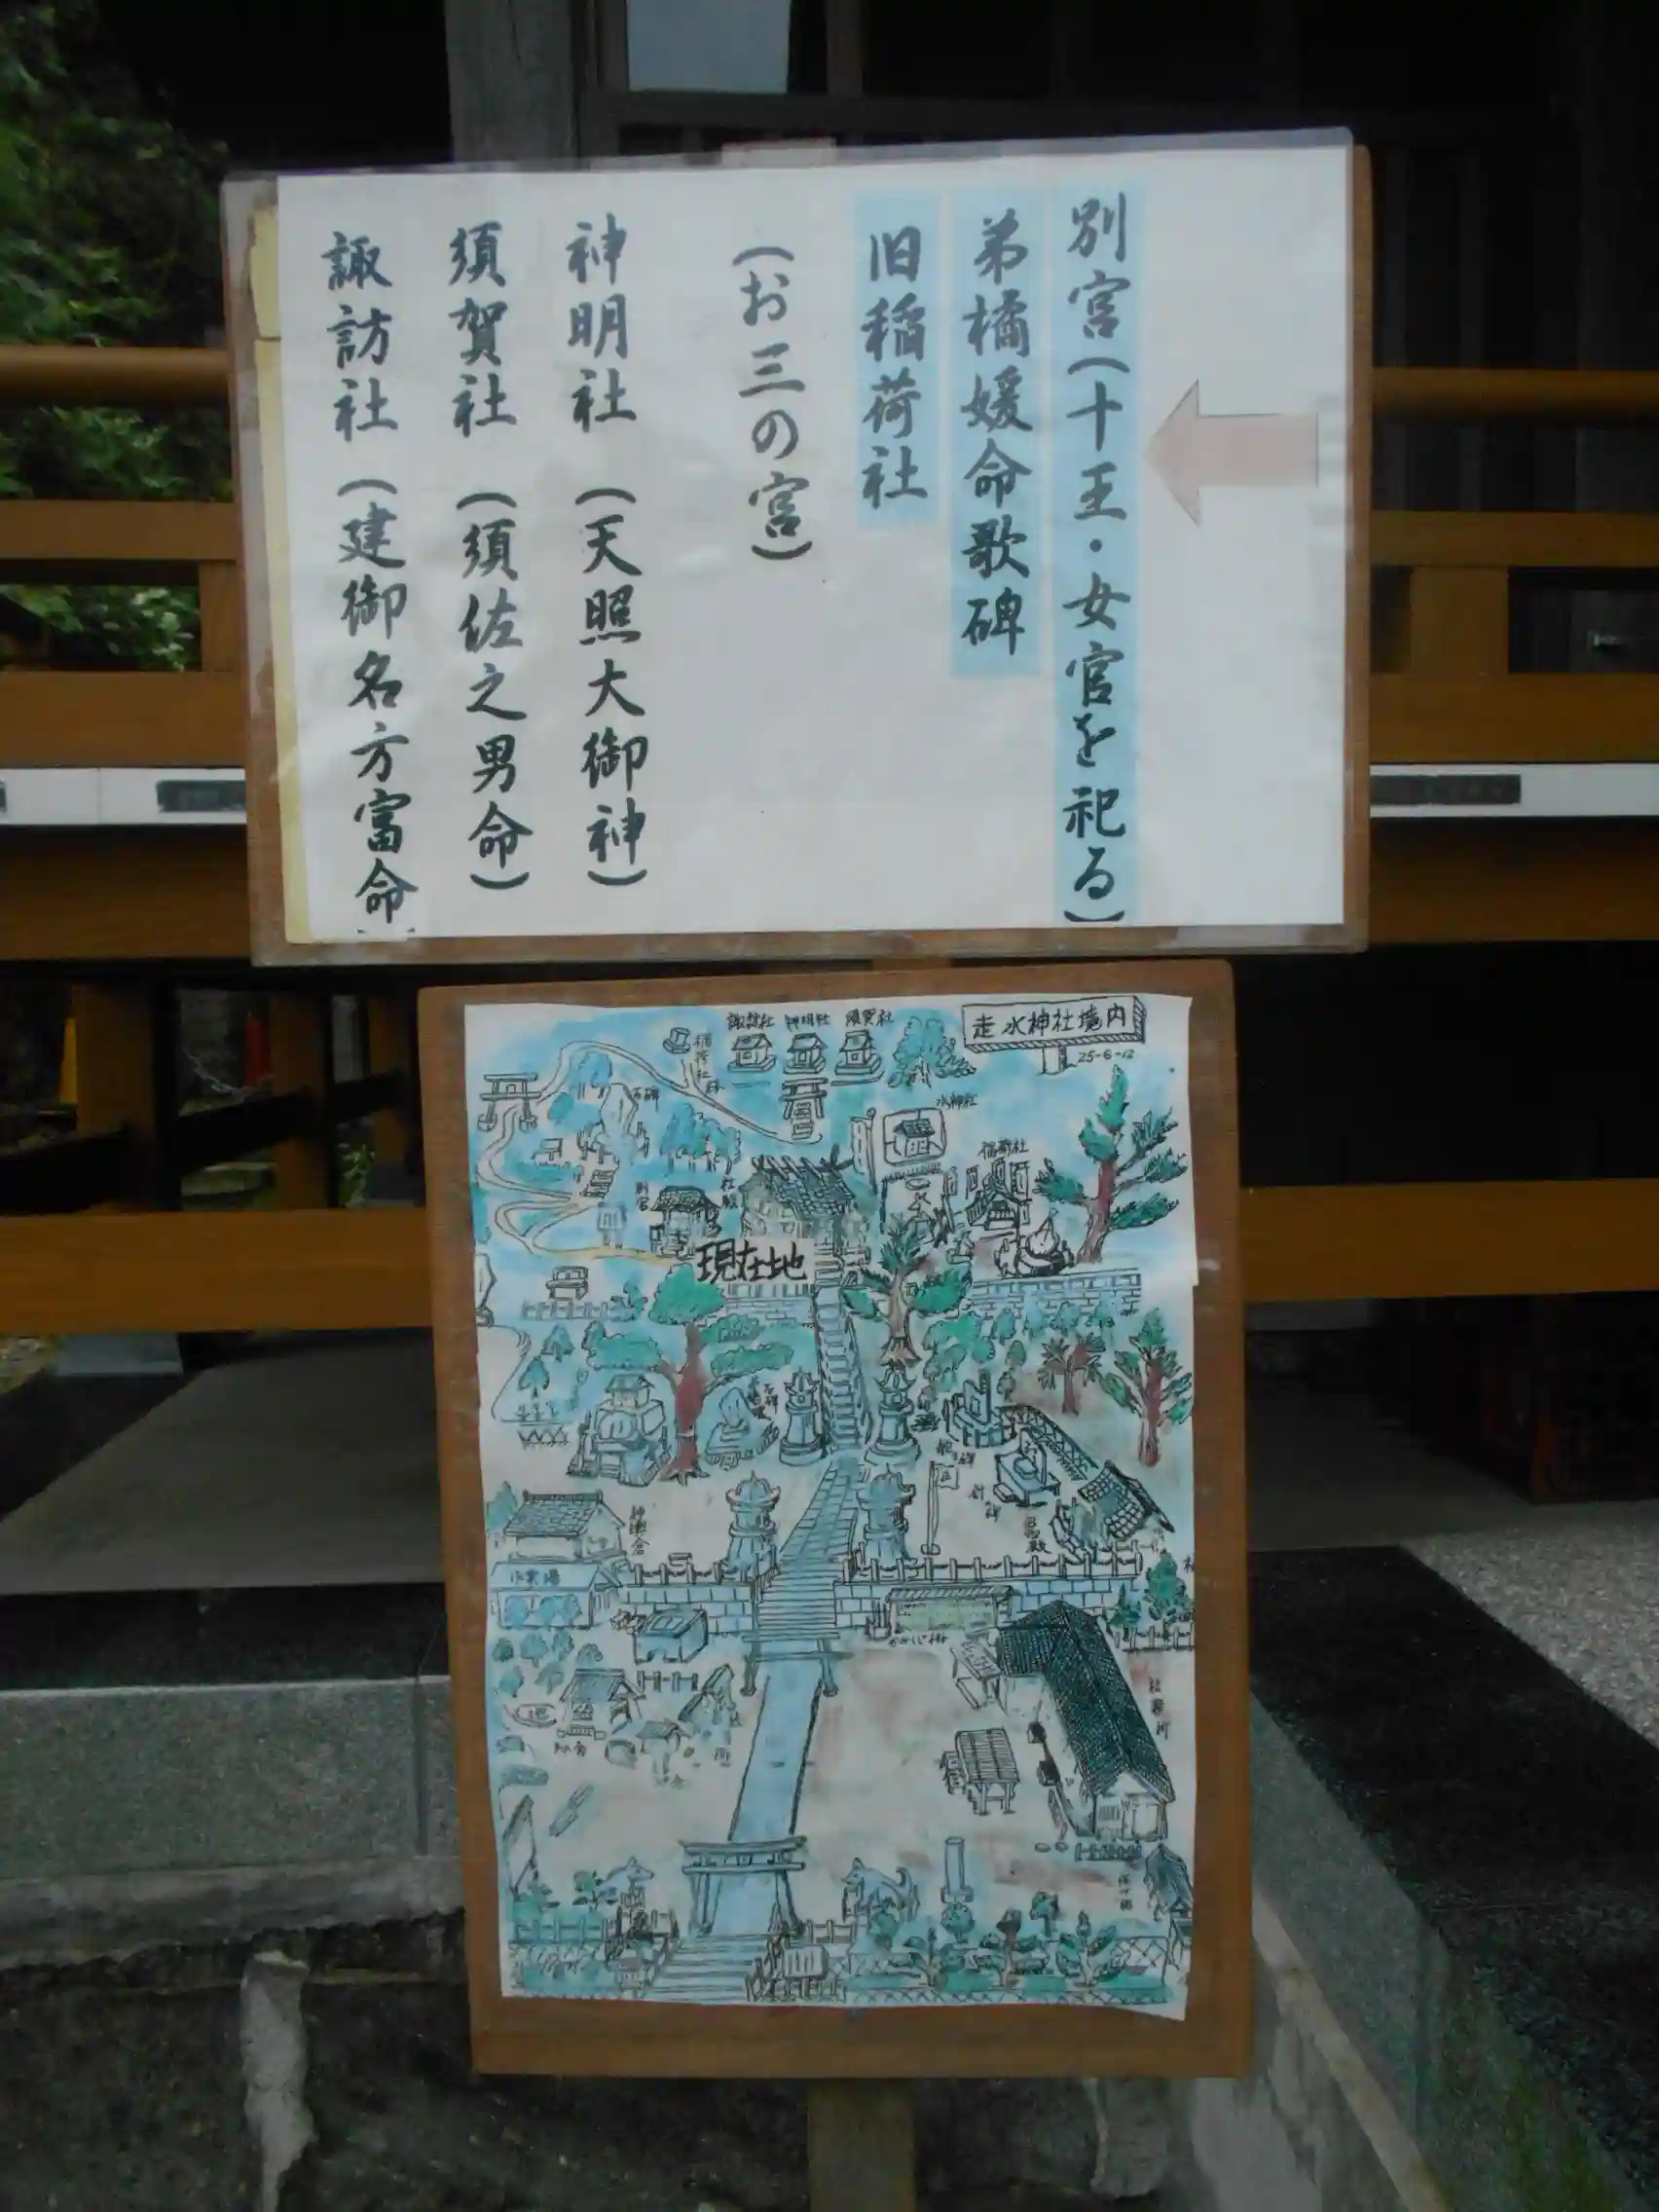 別宮(十王・女官を祀る)
弟橘媛命歌碑
旧稲荷社
(お三の宮)
神明社 (天照大御神)
須賀社 (須佐之男命)
諏訪社 (建御名方富命)
走水神社境内
25-6-12
諏訪社
神明社
須賀社
水神社
稲荷社
石碑
別宮
社殿
現在地
神輿倉
社務所